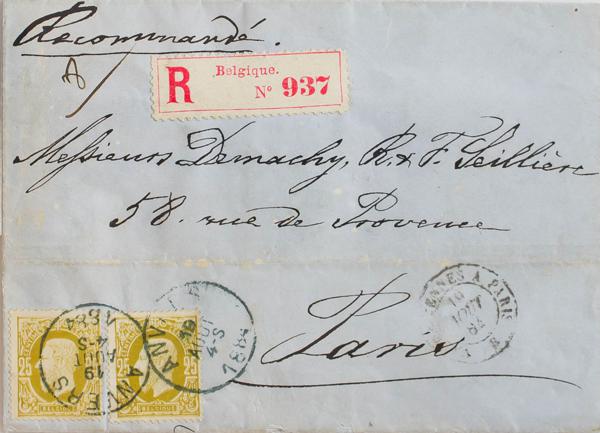 Recommandé.
R Belgique.
Nº 937
Messieurs Demachy, R. & F. Seillière
58. rue de Provence
Paris
ANVERS
19
AOUT
4-S
1884
ANVERS
19
AOUT
4-S
1884
ENNES A PARIS
19
AOUT
84
25 25
BELGIQUE
25 25
BELGIQUE